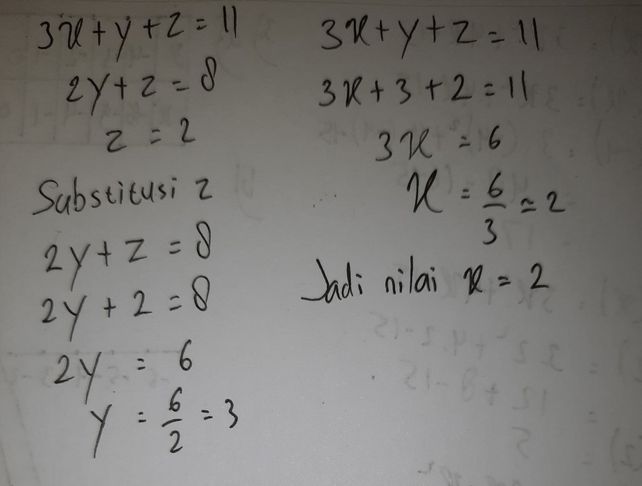 3x+y+z=11
2y+z=8
z=2
Substitusi z
2y+z=8
2y+2=8
2y=6
y=6/2=3
3x+y+z=11
3x+3+2=11
3x=6
x=6/3=2
Jadi nilai x=2